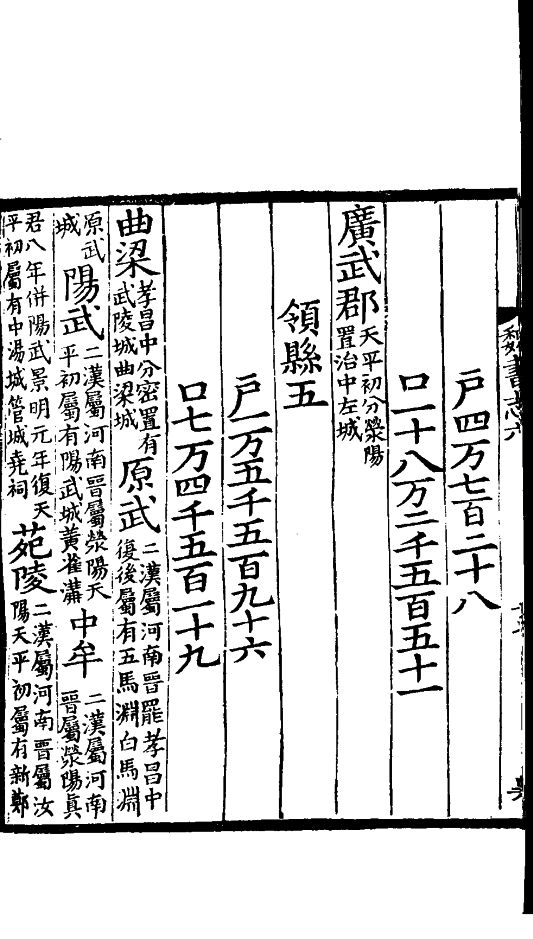 魏書志六
戶四万七百二十八
口一十八万二千五百五十一
廣武郡天平初分滎陽置治中左城
領縣五
戶一万五千五百九十六
口七万四千五百一十九
曲梁孝昌中分密置有武陵城曲梁城原武二漢屬河南晉罷孝昌中復後屬有五馬淵白馬淵
原武城陽武二漢屬河南晉屬滎陽天平初屬有陽武城黃雀溝中牟二漢屬河南晉屬滎陽真
君八年併陽武景明元年復天平初屬有中湯城管城堯祠苑陵二漢屬河南晉屬汝陽天平初屬有新鄭